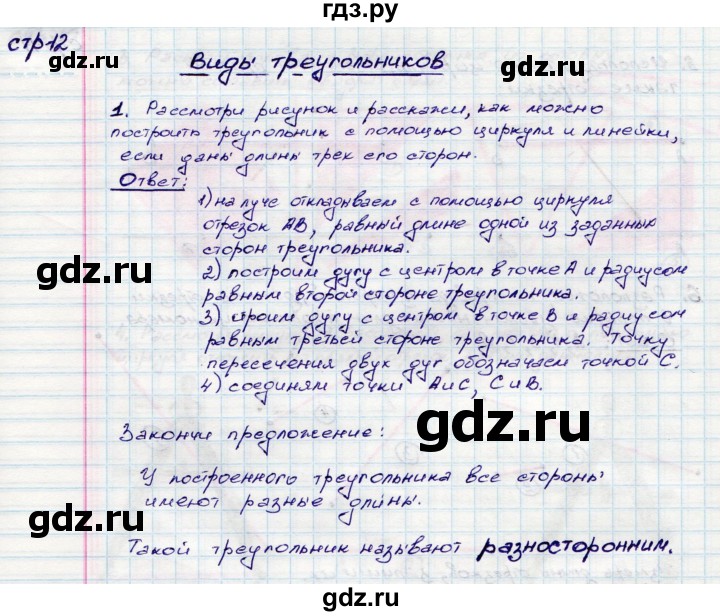 гдз.ру
стр12
Виды треугольников
1. Рассмотри рисунок и расскажи, как можно
построить треугольник с помощью циркуля и линейки,
если даны длины трех его сторон.
Ответ:
1) на луче откладываем с помощью циркуля
отрезок АВ, равный длине одной из заданных
сторон треугольника.
2) построим дугу с центром в точке А и радиусом
равным второй стороне треугольника.
3) строим дугу с центром в точке В и радиусом
равным третьей стороне треугольника. Точку
пересечения двух дуг обозначаем точкой С.
4) соединям точки А и С, С и В.
Закончи предложение:
У построенного треугольника все стороны
имеют разные длины.
Такой треугольник называют разносторонним.
gdz.ru
gdz.ru
gdz.ru
gdz.ru
gdz.ru
gdz.ru
гдз.ру